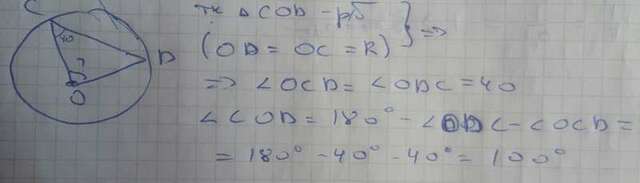 C
40
D
O
тк △COD - р/б
(OD = OC = R) } =>
=> ∠OCD = ∠ODC = 40
∠COD = 180° - ∠ODC - ∠OCD =
= 180° - 40° - 40° = 100°